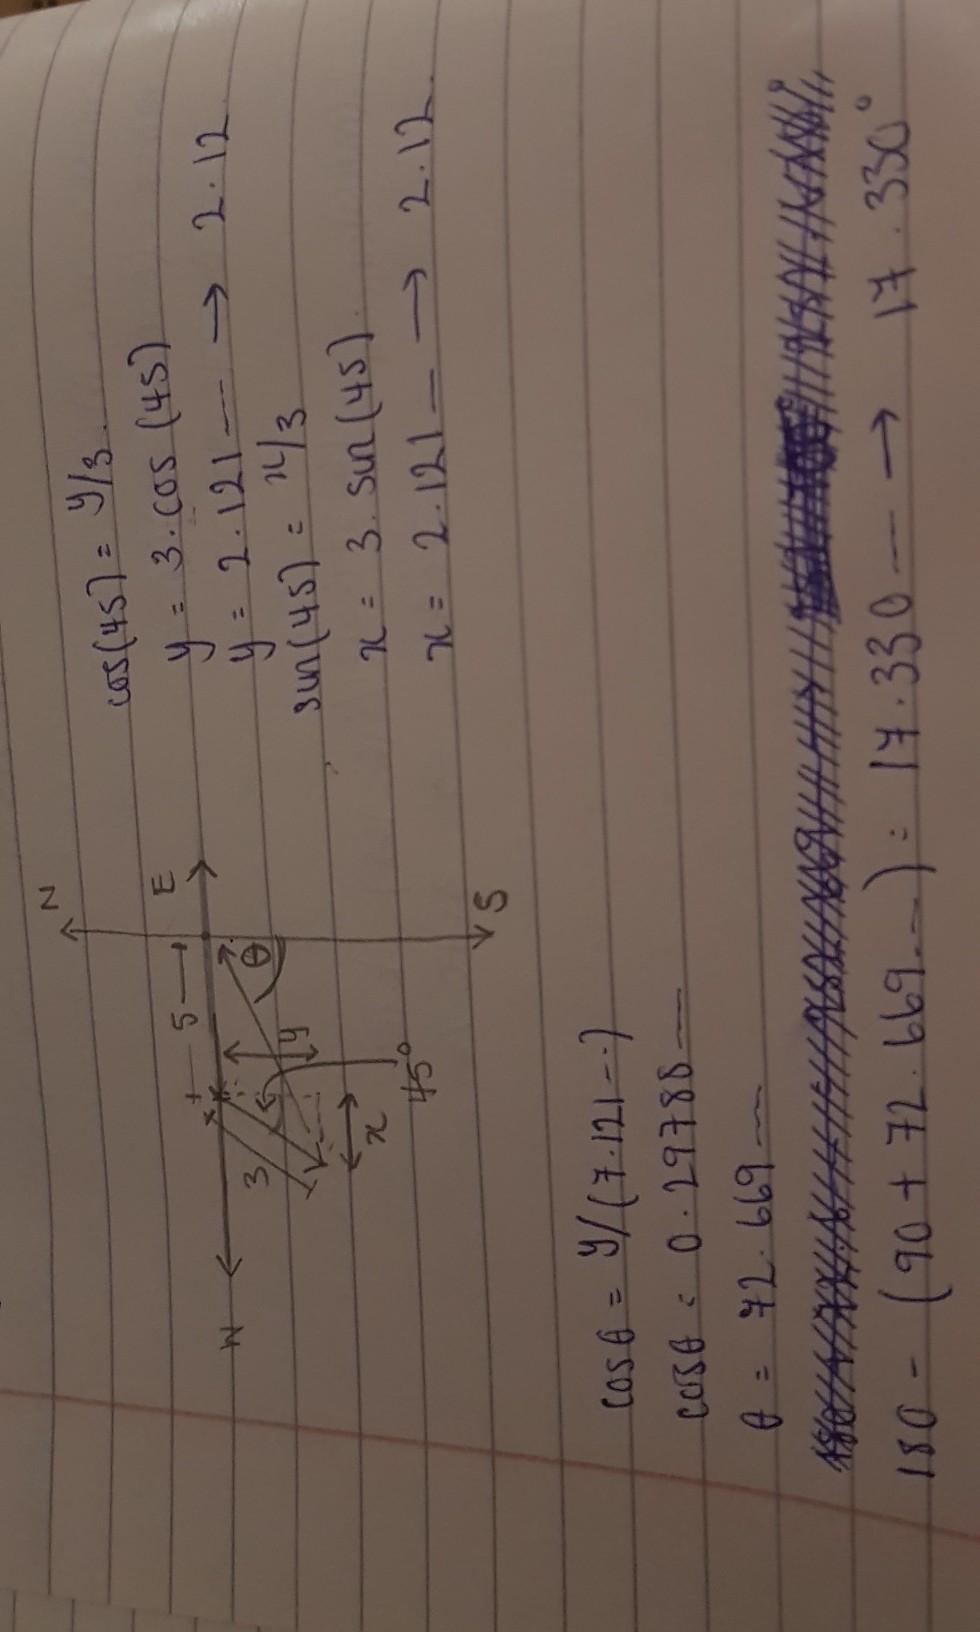 N
W
E
S
5
3
θ
y
x
45°
cos(45) = y/3
y = 3.cos (45)
y = 2.121 — → 2.12
sin(45) = x/3
x = 3.sin(45)
x = 2.121 — → 2.12
cosθ = y/(7.121--)
cosθ = 0.29788 —
θ = 72.669 —
180 - (90 + 72.669--) = 17.330 -- → 17.330°